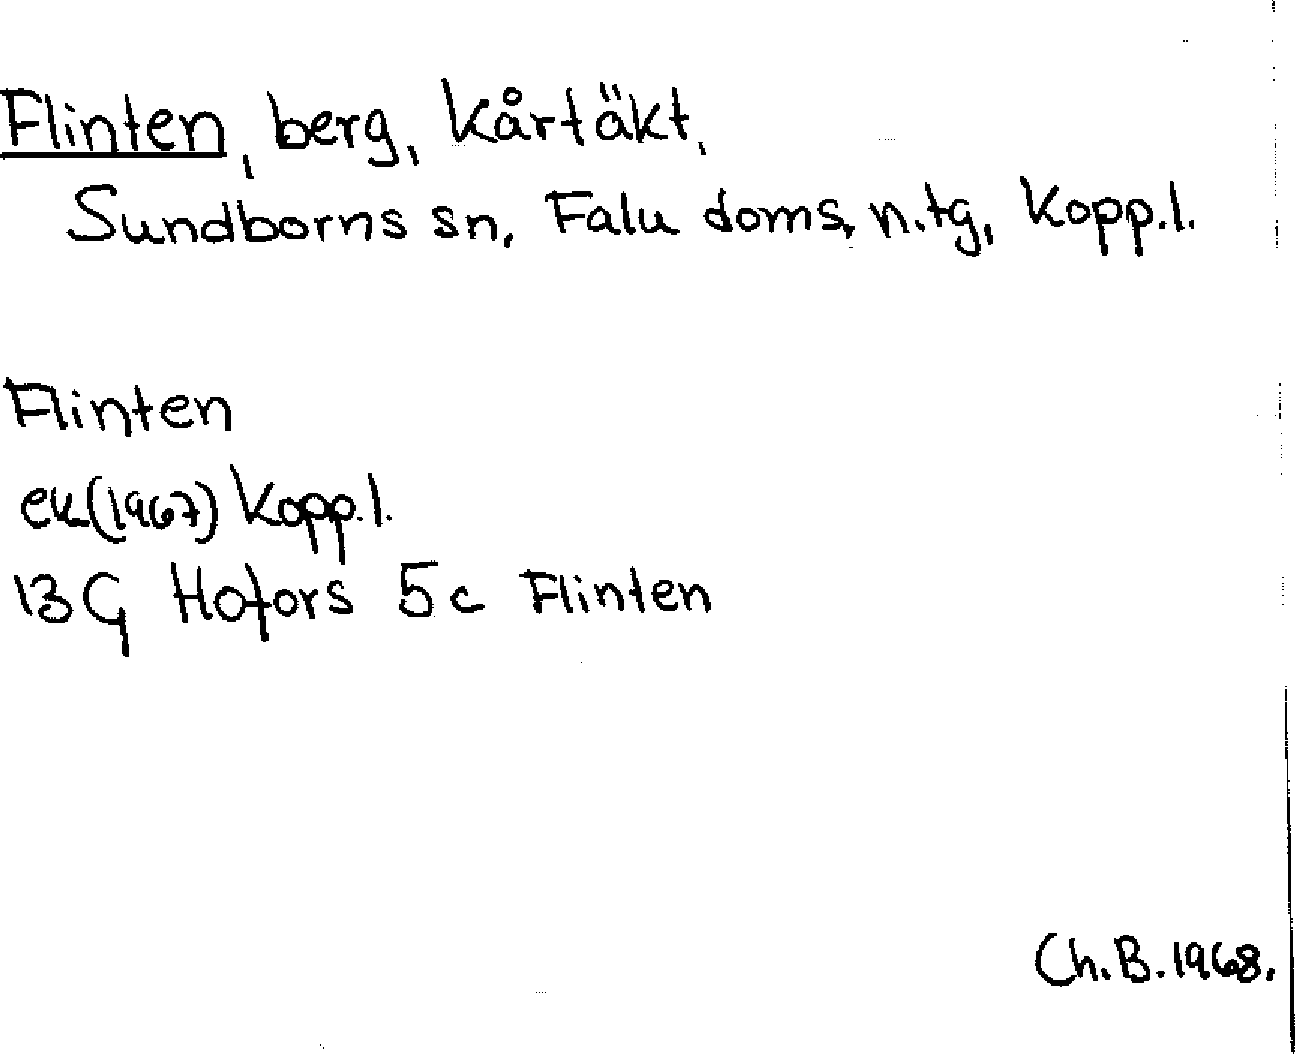 Flinten, berg, Kårtäkt,
Sundborns sn, Falu doms. n.tg, Kopp.l.
Flinten
ek(1967) Kopp.l.
13G Hofors 5c Flinten
Ch.B.1968.